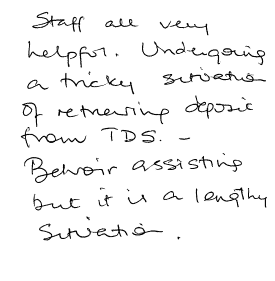 Staff all very
helpful. Undergoing
a tricky situation
of retrieving deposit
from TDS. -
Belvoir assisting
but it is a lengthy
Situation.